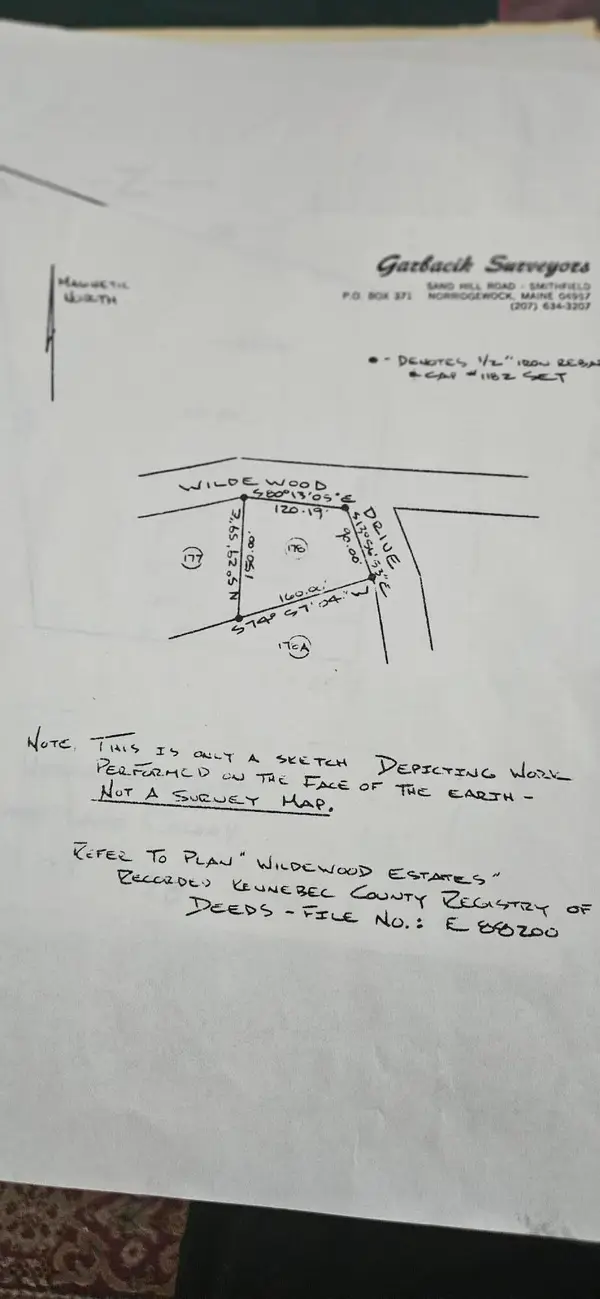 Garbacik Surveyors
SAND HILL ROAD - SMITHFIELD
P.O. BOX 371 NORRIDGEWOCK, MAINE 04957
(207) 634-3207
MAGNETIC
NORTH
● - DENOTES 1/2" IRON REBAR
& CAP #1182 SET
WILDEWOOD
DRIVE
S80°13'05"E
120.19'
90.00'
150.00'
177
176
160.01'
S74° 57' 04" W
176A
NOTE. THIS IS ONLY A SKETCH DEPICTING WORK
PERFORMED ON THE FACE OF THE EARTH -
NOT A SURVEY MAP.
REFER TO PLAN "WILDEWOOD ESTATES"
RECORDED KENNEBEC COUNTY REGISTRY OF
DEEDS - FILE NO.: E 88200